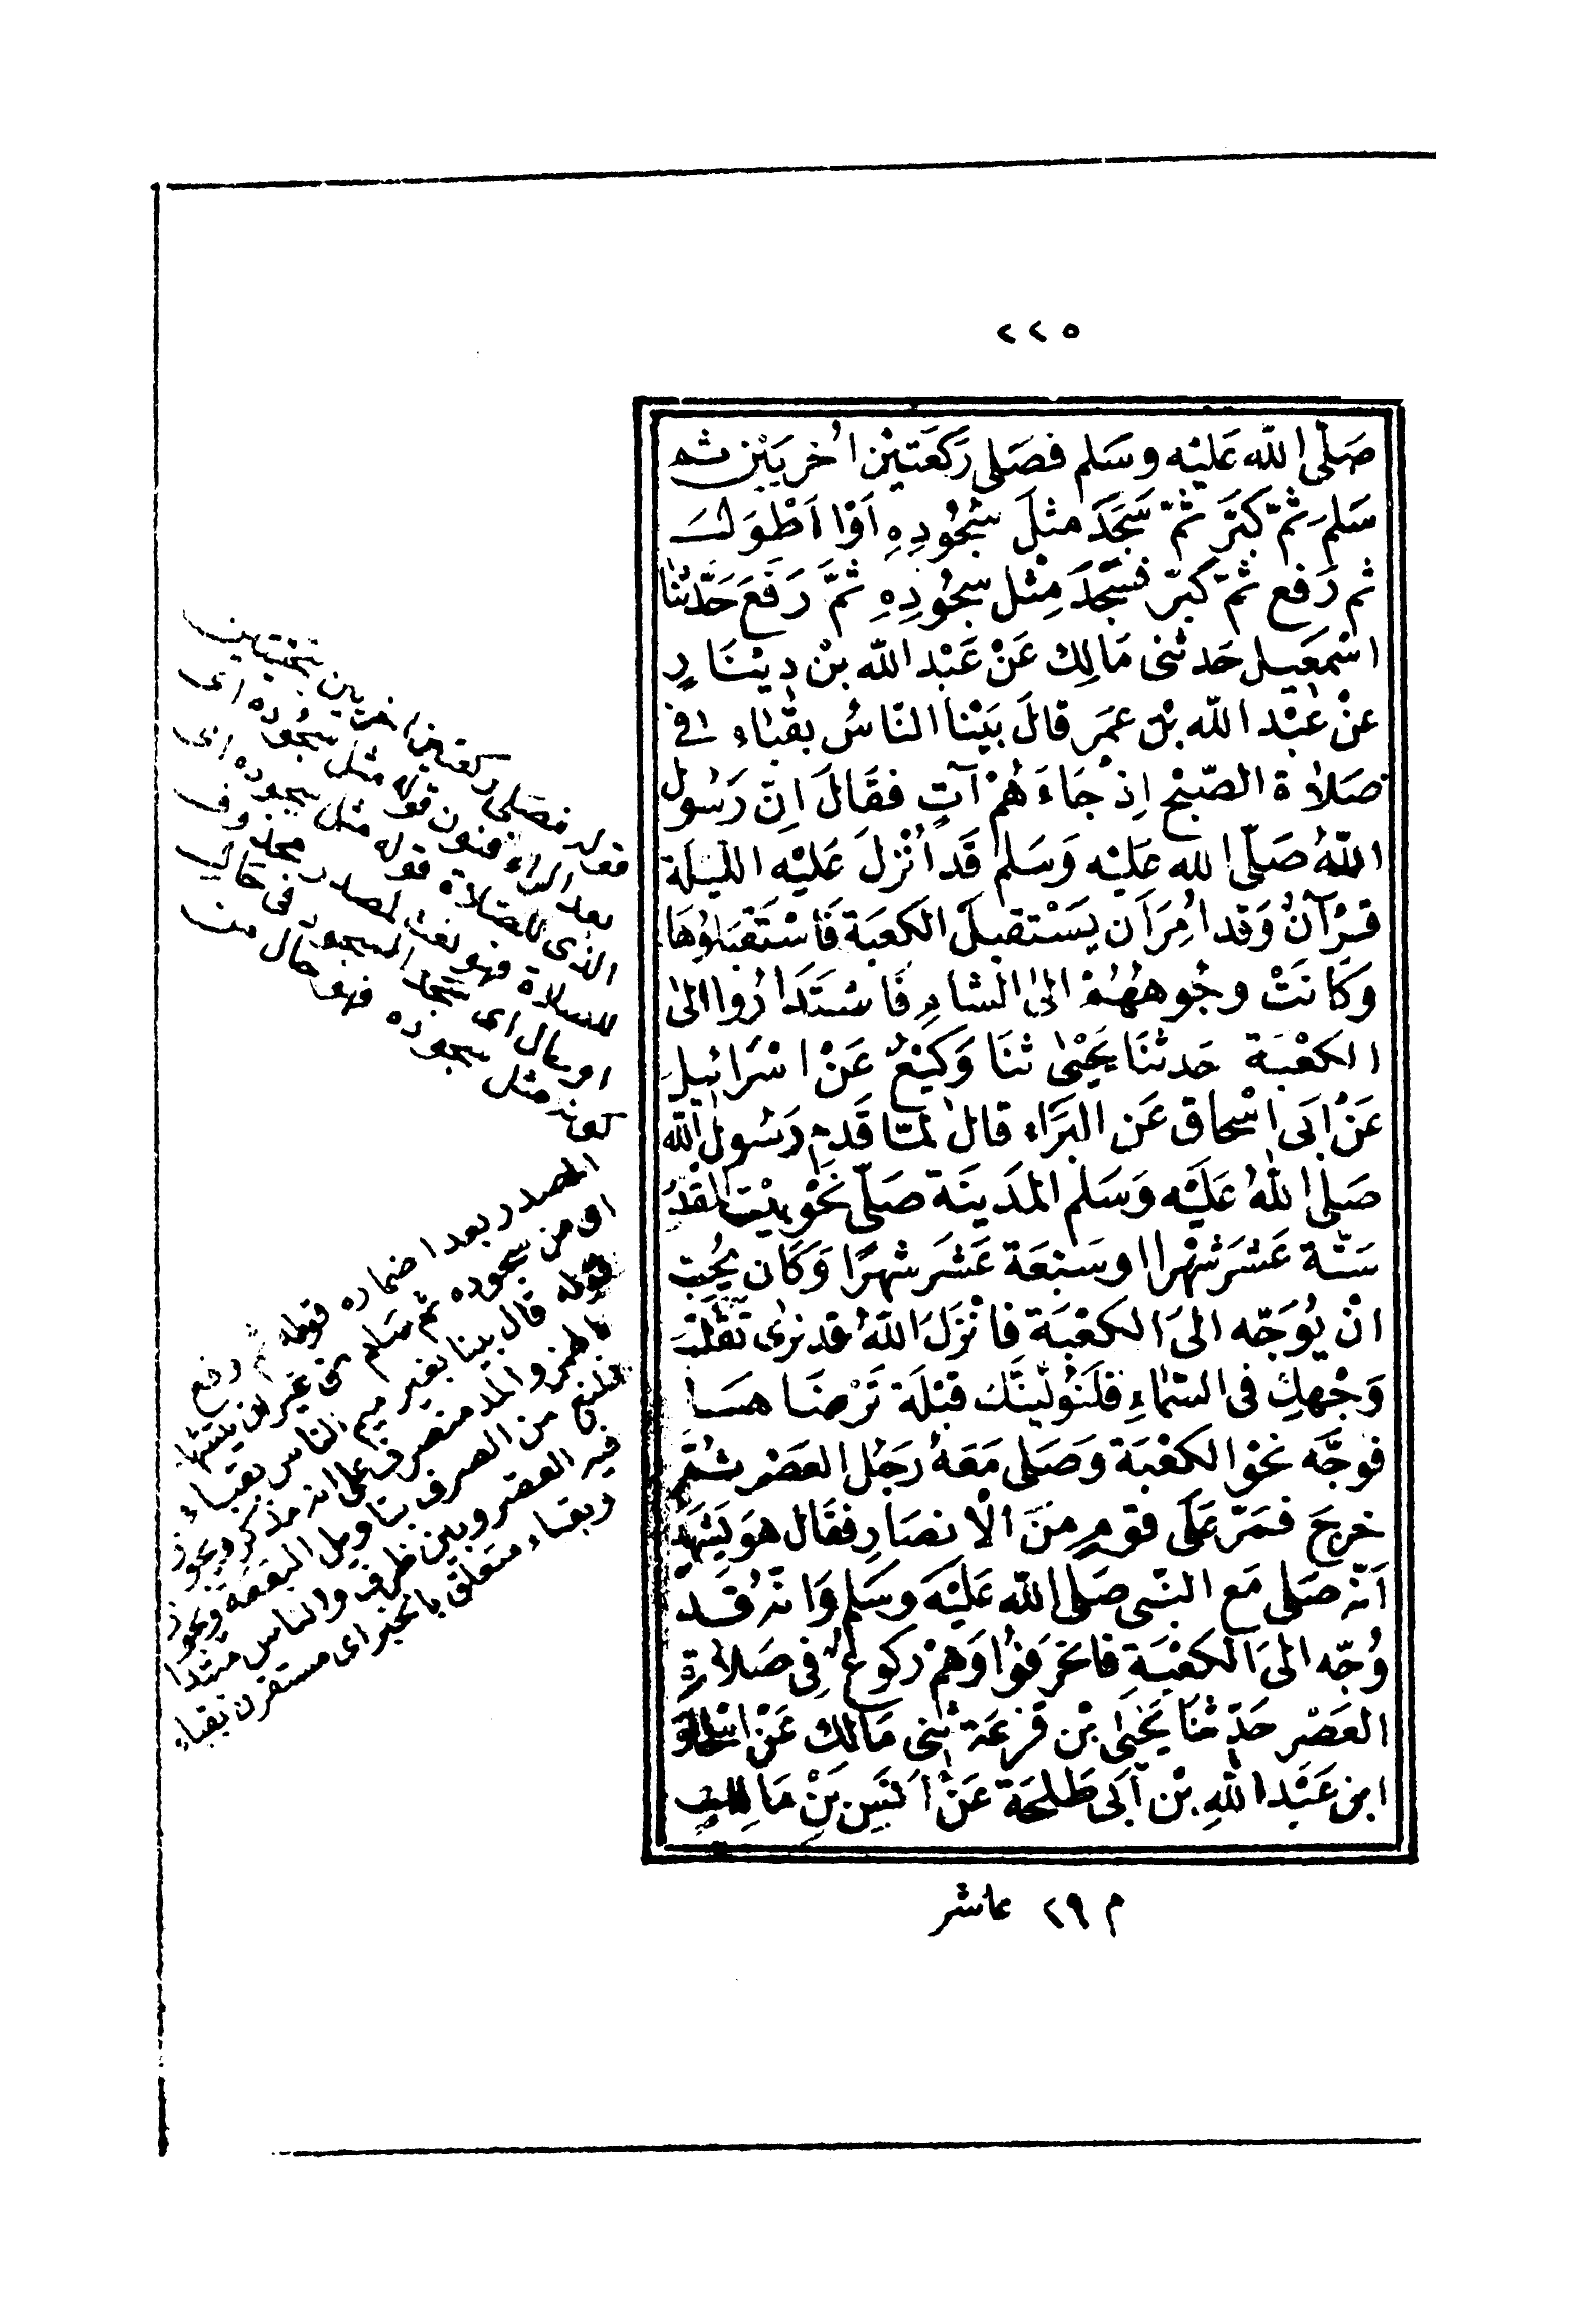 ٢٢٥
صَلّى الله عَليْه وسَلم فصَلى رَكعَتيْن اُخريَيْن ثم
سَلمَ ثمّ كبّرَ ثمّ سَجَدَ مثلَ سُجُودِهِ اَوْ اَطْوَلَ
ثم رَفع ثمّ كبّر فسَجَدَ مِثْل سجُودِهِ ثمَّ رَفعَ حَدّثنَا
اسْمعَيل حَدثنى مَالِك عَنْ عَبْد الله بْن دِيْنَارٍ
عنْ عَبْد الله بْن عمَر قالَ بَيْنا النّاسُ بقبَاء فى
صَلاة الصّبْح اِذْ جَاءَهُمْ آتٍ فقَالَ اِنّ رَسُول
اللّهُ صَلّى الله عَليْه وَسَلم قَد اُنْزلَ عَليْه الليْلَة
قرْآنٌ وَقد اُمِرَ اَن يَسْتقبلَ الكَعبَة فَاسْتَقبَلوُهَا
وَكَانَتْ وجُوههُمْ الىٰ الشامِ فَاسْتَدَارُوا الىٰ
الكعْبَة حَدثنَا يَحْيٰى ثنَا وَكيْعٌ عَنْ اسْرَائيلَ
عَنْ اَبى اسْحاق عَن البَرَاء قالَ لمّا قَدِمَ رَسُول الله
صَلى اللهُ عَليْه وَسَلم المدَينَة صَلّى نَحْو بيْت المقْدَّ
سَتّة عَشرَ شهْرا اوسَبْعَة عَشَر شهرًا وَكَان يُحِبّ
انْ يُوَجّه الىَ الكعْبَة فانْزلَ اللهُ قد نرىٰ تَقلّبَ
وَجْهكِ فى السّمَاءِ فلَنُوَلّينَّكَ قبْلَة تَرْضَاهَا
فوجَّه نحْو الكعْبَة وَصَلى مَعَهُ رَجُل العَصْر ثمّ
خرجَ فمَرّ عَلَى قومٍ مِنَ الْانصَارِ فقَال هوَ يَشهَدُ
اَنّه صَلى مَع النّبى صَلى اللّه عَليْه وسَلم وَانّهُ قد
وُجّه الىَ الكعْبَةِ فانحَرفوُا وَهمْ ركوعٌ فِى صَلاةِ
العَصْر حَدّثنَا يَحْيٰى بْن قزعَة ثنى مَالك عَنْ اسْحٰاق
ابن عَبْد اللهِ بْن اَبى طَلحَة عَنْ اَنَسِ بَنْ مَالِكٍ
م ٢٩ عاشر
قوله فصلى ركعتين اخريين بتحتيتين
بعد الراء فنون قوله مثل سجُوده اى
الذى للصلاة قوله مثل سجوده اى
للصلاة فهو نعت لمصدر محذوف
اى سجد السجود فى حال
كونه مثل سجوده فهو حال من
المصدر بعد اضماره قوله ثم رفع
اى من سجوده ثم سَلم من غير ان يتشهد
قوله قال بينا بغير ميم الناس بقباء
بالهمز والمد منصرف على انه مذكر ويجوز
فيه العصر وبين ظرف والناس مبتدا
وبقباء متعلق بالخبر اى مستقرن بقباء